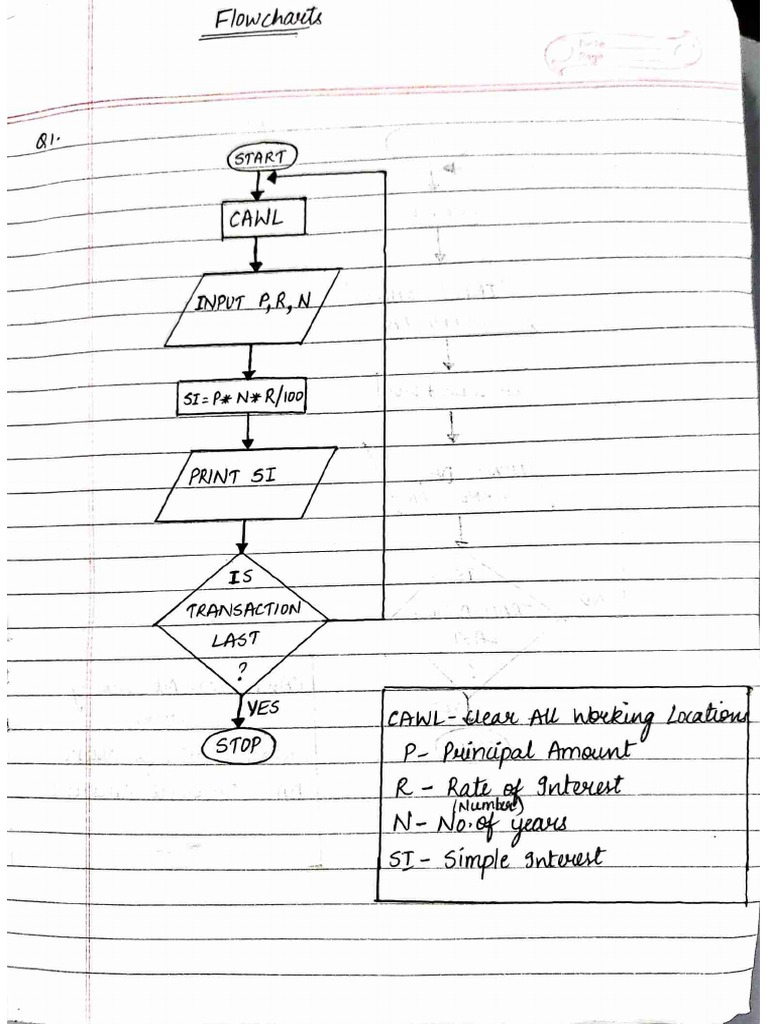 Flowcharts
Q1.
START
CAWL
INPUT P, R, N
SI = P * N * R/100
PRINT SI
IS
TRANSACTION
LAST
?
YES
STOP
CAWL - Clear All Working Locations
P - Principal Amount
R - Rate of Interest
(Number)
N - No. of years
SI - Simple Interest